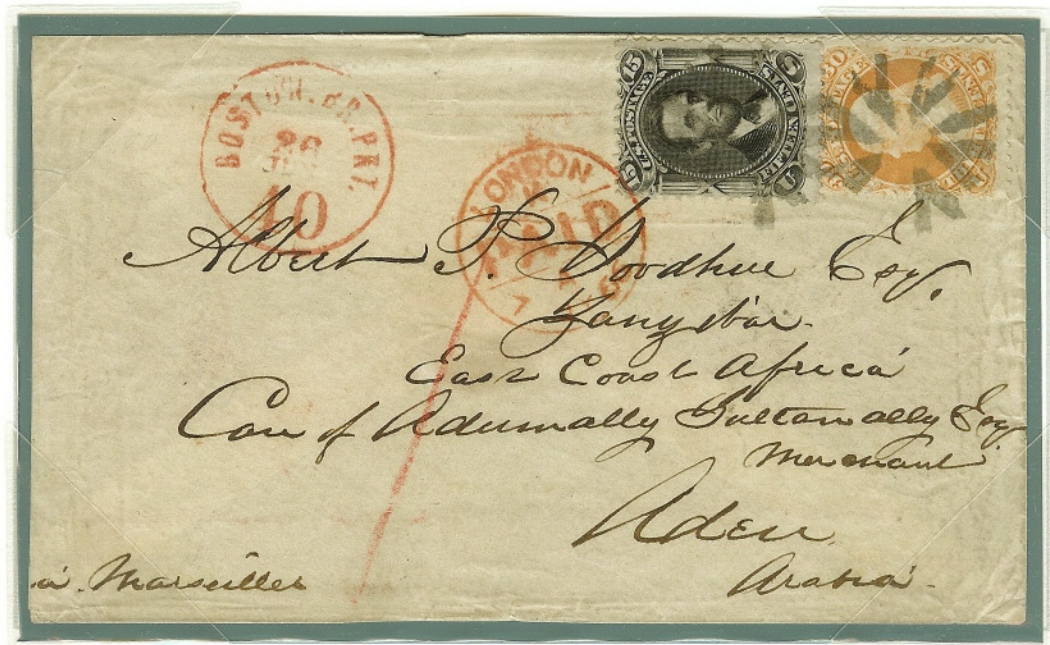 BOSTON. BR. PKT.
40
LONDON
PAID
U.S. POSTAGE
15
FIFTEEN CENTS
U S
30
Albert P. Goodhue Esq.
Zanzibar
East Coast Africa
Care of Adumally Sultanally Esqr
Merchant
Aden
Arabia
Marseilles